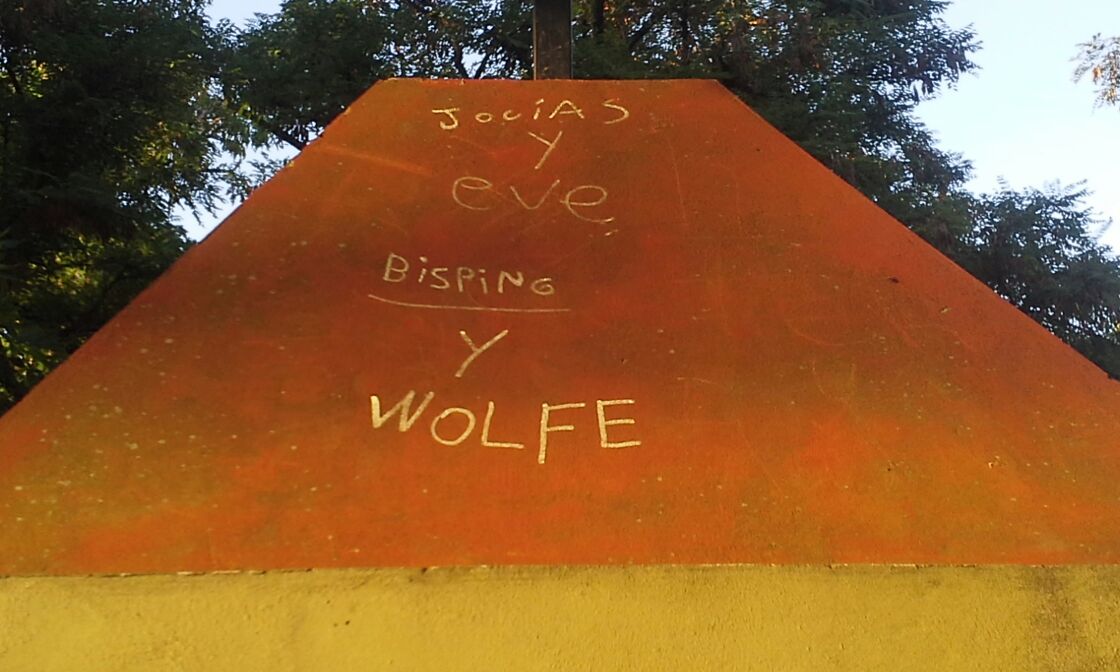 JOCiAS
Y
eve
BiSPiNG
Y
WOLFE